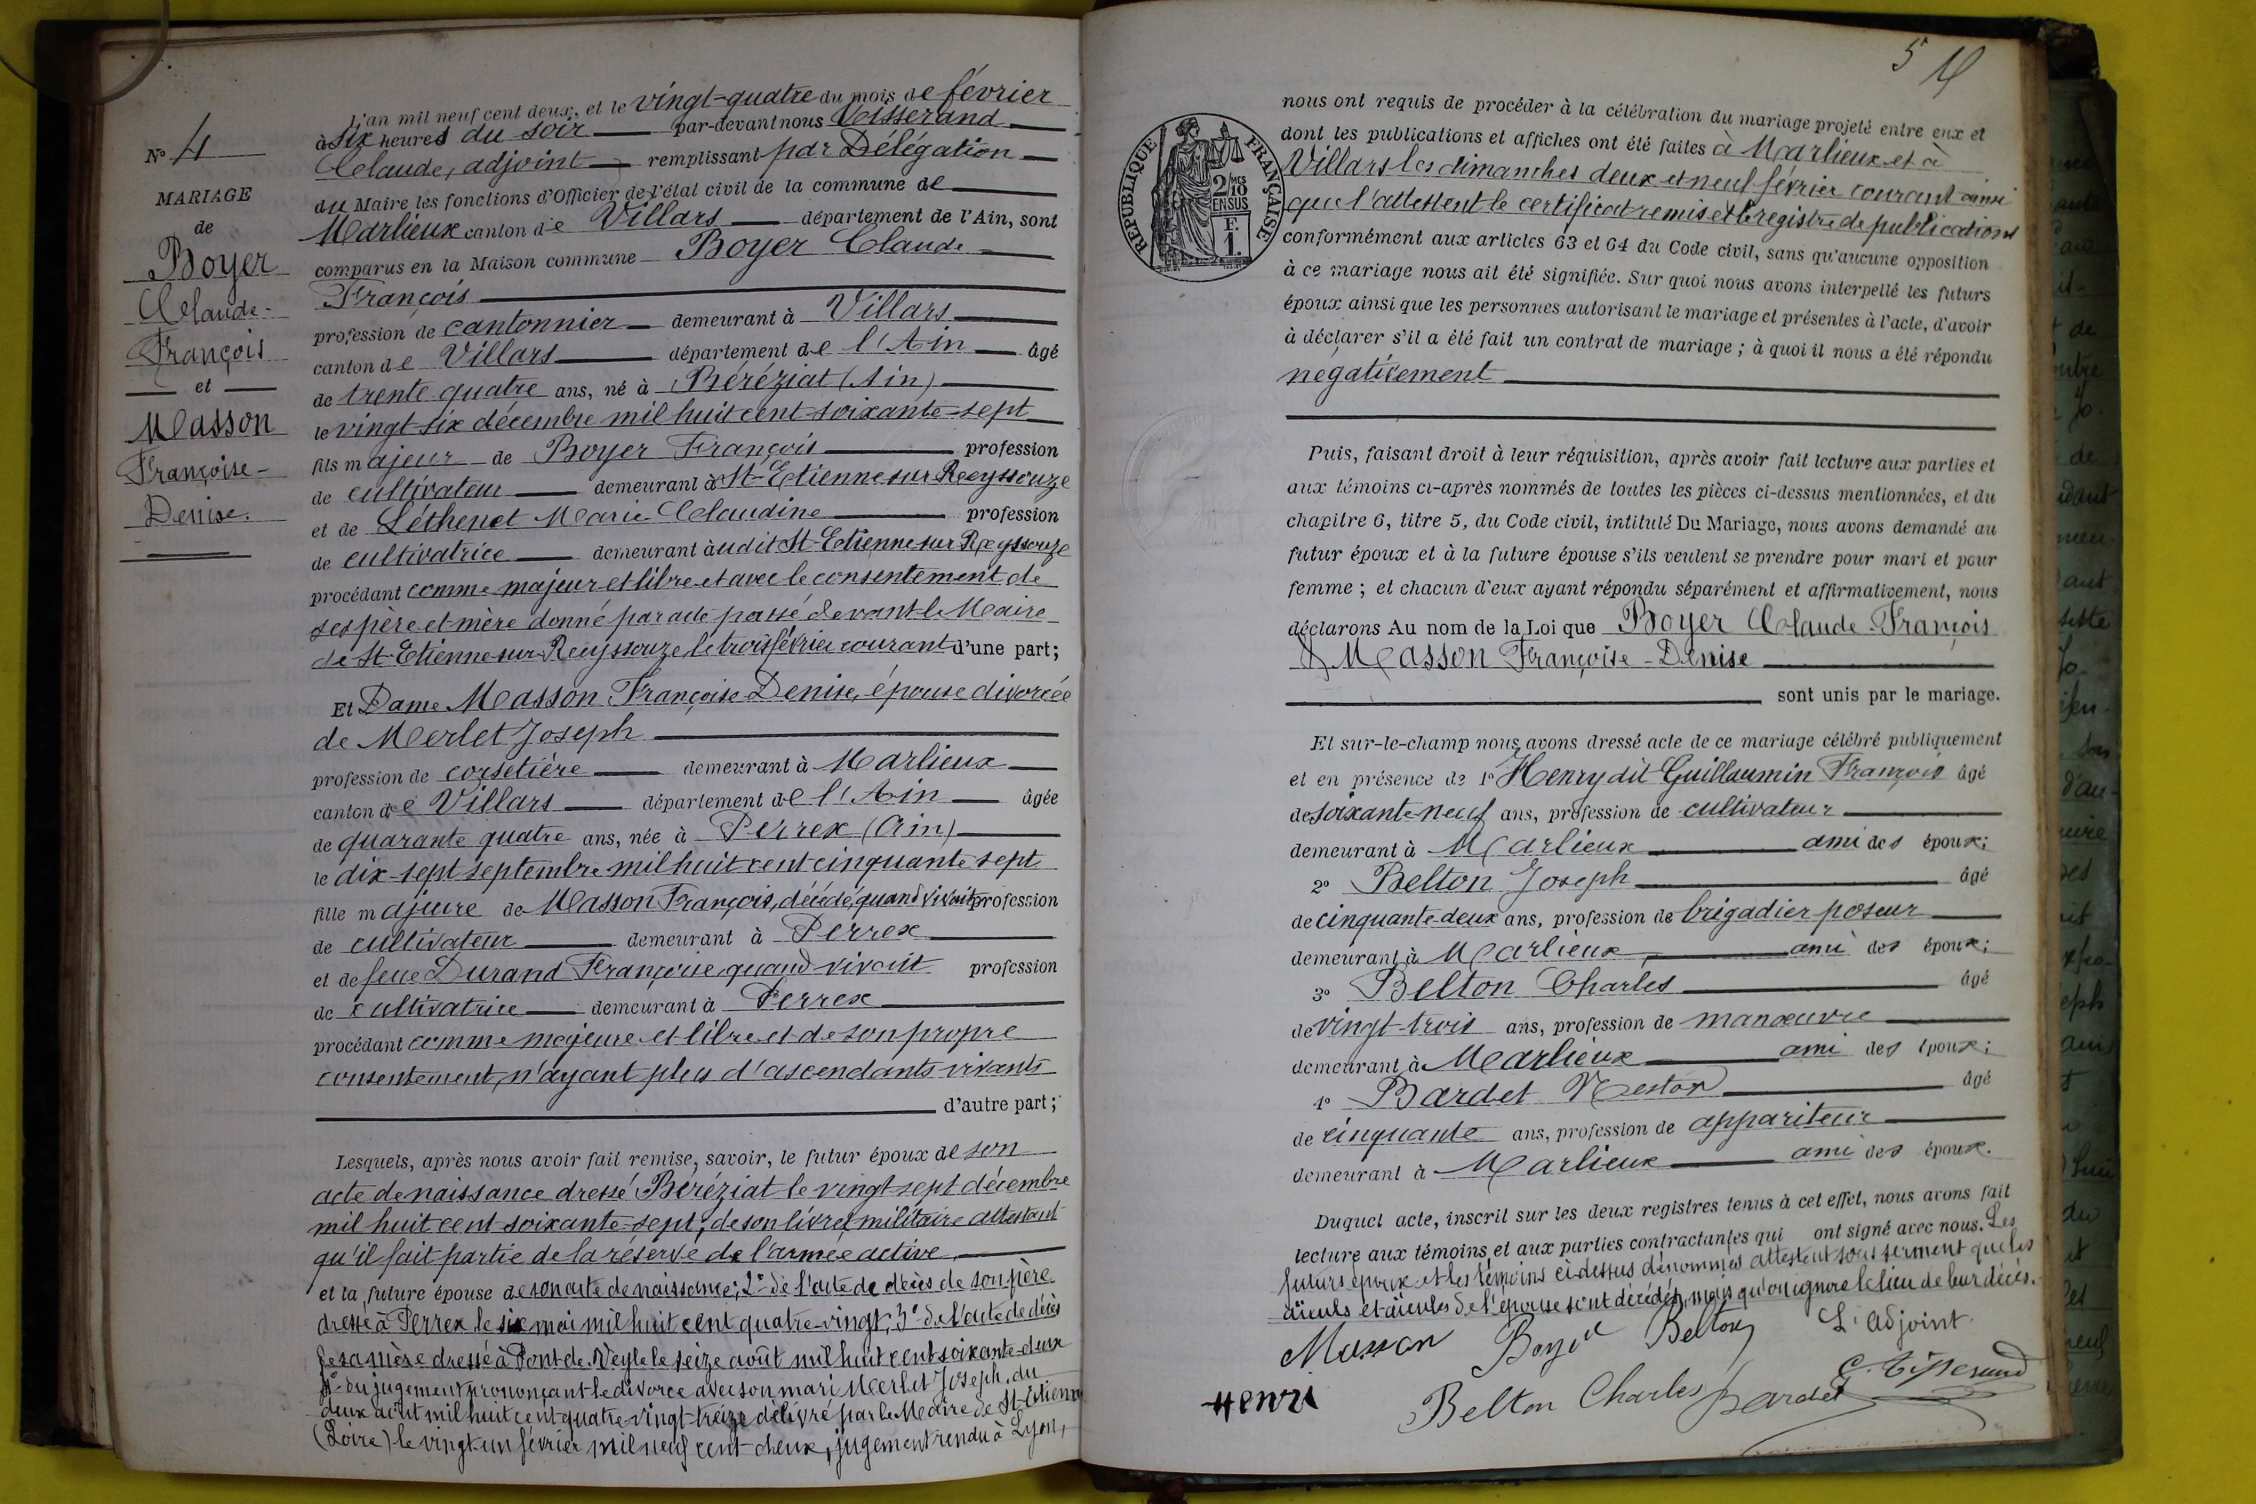 L'an mil neuf cent deux, et le vingt-quatre du mois de février
à six heures du soir par-devant nous Tisserand
Claude, adjoint remplissant par Délégation
du Maire les fonctions d'Officier de l'état civil de la commune de
Marlieux canton de Villars département de l'Ain, sont
comparus en la Maison commune Boyer Claude
François
profession de cantonnier demeurant à Villars
canton de Villars département de l'Ain âgé
de trente quatre ans, né à Béréziat (Ain)
le vingt six décembre mil huit cent soixante-sept
fils majeur de Boyer François profession
de cultivateur demeurant à St-Etienne sur Reyssouze
et de Léthenet Marie Claudine profession
de cultivatrice demeurant àudit St-Etienne sur Reyssouze
procédant comme majeur et libre et avec le consentement de
ses père et mère donné par acte passé devant le Maire
de St-Etienne sur Reyssouze, le trois février courant d'une part;
Et Dame Masson Françoise Denise, épouse divorcée
de Merlet Joseph
profession de corsetière demeurant à Marlieux
canton de Villars département de l'Ain âgée
de quarante quatre ans, née à Perrex (Ain)
le dix-sept septembre mil huit cent cinquante sept
fille majeure de Masson François, décédé, quand vivait profession
de cultivateur demeurant à Perrex
et de feue Durand Françoise quand vivait profession
de cultivatrice demeurant à Perrex
procédant comme majeure et libre et de son propre
consentement, n'ayant plus d'ascendants vivants
d'autre part;
Lesquels, après nous avoir fait remise, savoir, le futur époux de son
acte de naissance dressé Béréziat le vingt sept décembre
mil huit cent soixante-sept; de son livret militaire attestant
qu'il fait partie de la réserve de l'armée active
et la future épouse de son acte de naissance; 2º de l'acte de décès de son père
dressé à Perrex le six mai mil huit cent quatre-vingt; 3º de l'acte de décès
de sa mère dressé à Pont-de-Veyle le seize août mil huit cent soixante-deux
4º du jugement prononçant le divorce avec son mari Merlet Joseph, du
deux août mil huit cent quatre-vingt-treize délivré par le Maire de St-Etienne
(Loire) le vingt-un février mil neuf cent-deux, jugement rendu à Lyon,
Nº 4
MARIAGE
de
Boyer
Claude-
François
et
Masson
Françoise-
Denise.
5
REPUBLIQUE FRANÇAISE
2/10 MES
EN SUS
F.
1.
nous ont requis de procéder à la célébration du mariage projeté entre eux et
dont les publications et affiches ont été faites à Marlieux et à
Villars les dimanches deux et neuf février courant ainsi
que l'attestent le certificat remis et le registre de publications
conformément aux articles 63 et 64 du Code civil, sans qu'aucune opposition
à ce mariage nous ait été signifiée. Sur quoi nous avons interpellé les futurs
époux ainsi que les personnes autorisant le mariage et présentes à l'acte, d'avoir
à déclarer s'il a été fait un contrat de mariage; à quoi il nous a été répondu
négativement
Puis, faisant droit à leur réquisition, après avoir fait lecture aux parties et
aux témoins ci-après nommés de toutes les pièces ci-dessus mentionnées, et du
chapitre 6, titre 5, du Code civil, intitulé Du Mariage, nous avons demandé au
futur époux et à la future épouse s'ils veulent se prendre pour mari et pour
femme; et chacun d'eux ayant répondu séparément et affirmativement, nous
déclarons Au nom de la Loi que Boyer Claude-François
& Masson Françoise-Denise
sont unis par le mariage.
Et sur-le-champ nous avons dressé acte de ce mariage célébré publiquement
et en présence de 1º Henry dit Guillaumin François âgé
de soixante-neuf ans, profession de cultivateur
demeurant à Marlieux ami des époux;
2º Belton Joseph âgé
de cinquante deux ans, profession de brigadier poseur
demeurant à Marlieux ami des époux;
3º Belton Charles âgé
de vingt-trois ans, profession de manœuvre
demeurant à Marlieux ami des époux;
4º Bardet Nestor âgé
de cinquante ans, profession de appariteur
demeurant à Marlieux ami des époux.
Duquel acte, inscrit sur les deux registres tenus à cet effet, nous avons fait
lecture aux témoins et aux parties contractantes qui ont signé avec nous. Les
futurs époux et les témoins ci-dessus dénommés attestent sous serment que les
aïeuls et aïeules de l'épouse sont décédés, mais qu'on ignore le lieu de leur décés.
Masson Boyer Belton L'adjoint
Henri Belton Charles Bardet C. Tisserand